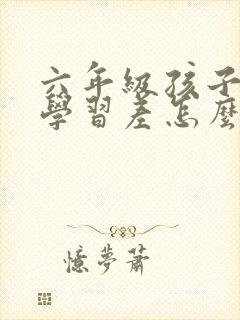 六年級孩子
學習差怎麼
憶夢蕭